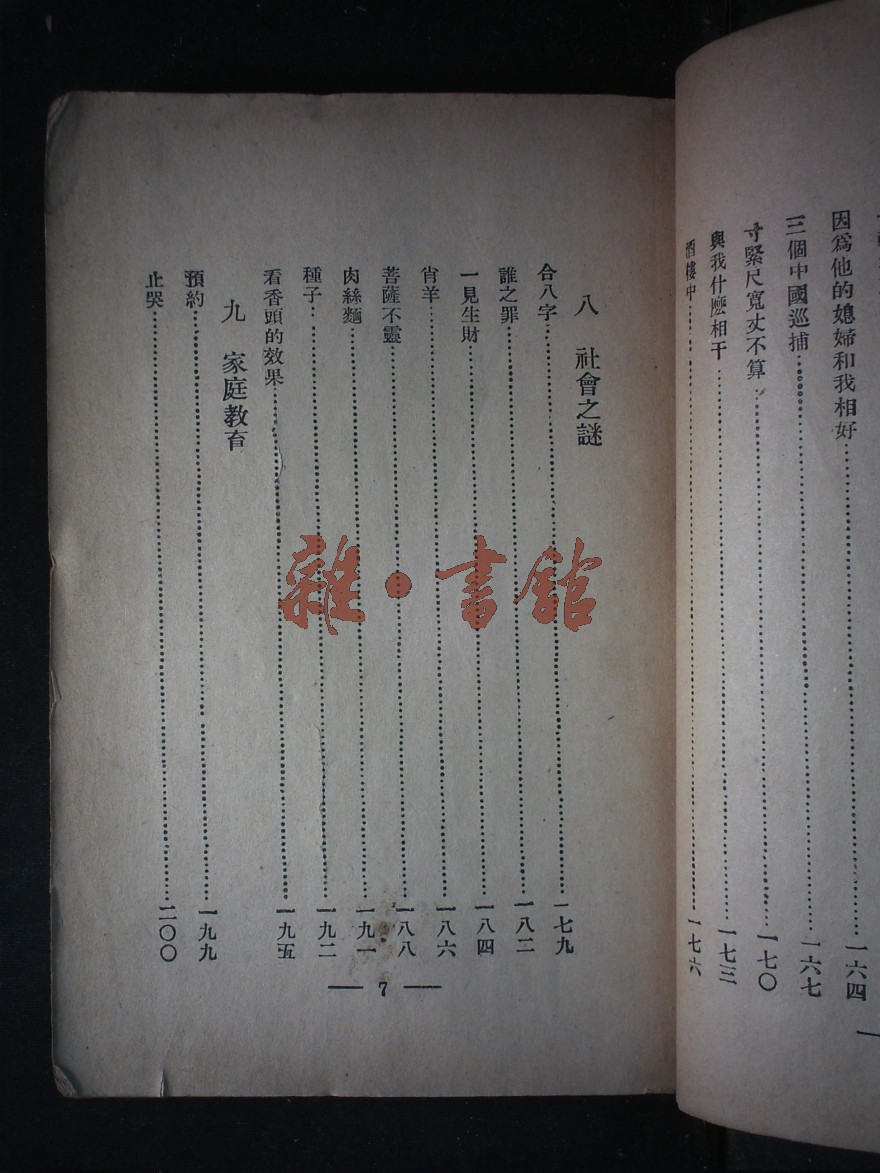 因爲他的媳婦和我相好……一六四
三個中國巡捕……一六七
寸緊尺寬丈不算……一七〇
與我什麽相干……一七三
酒樓中……一七六
八 社會之謎
合八字……一七九
誰之罪……一八二
一見生財……一八四
肖羊……一八六
菩薩不靈……一八八
肉絲麵……一九一
種子……一九二
看香頭的效果……一九五
九 家庭教育
預約……一九九
止哭……二〇〇
— 7 —
雜·書館